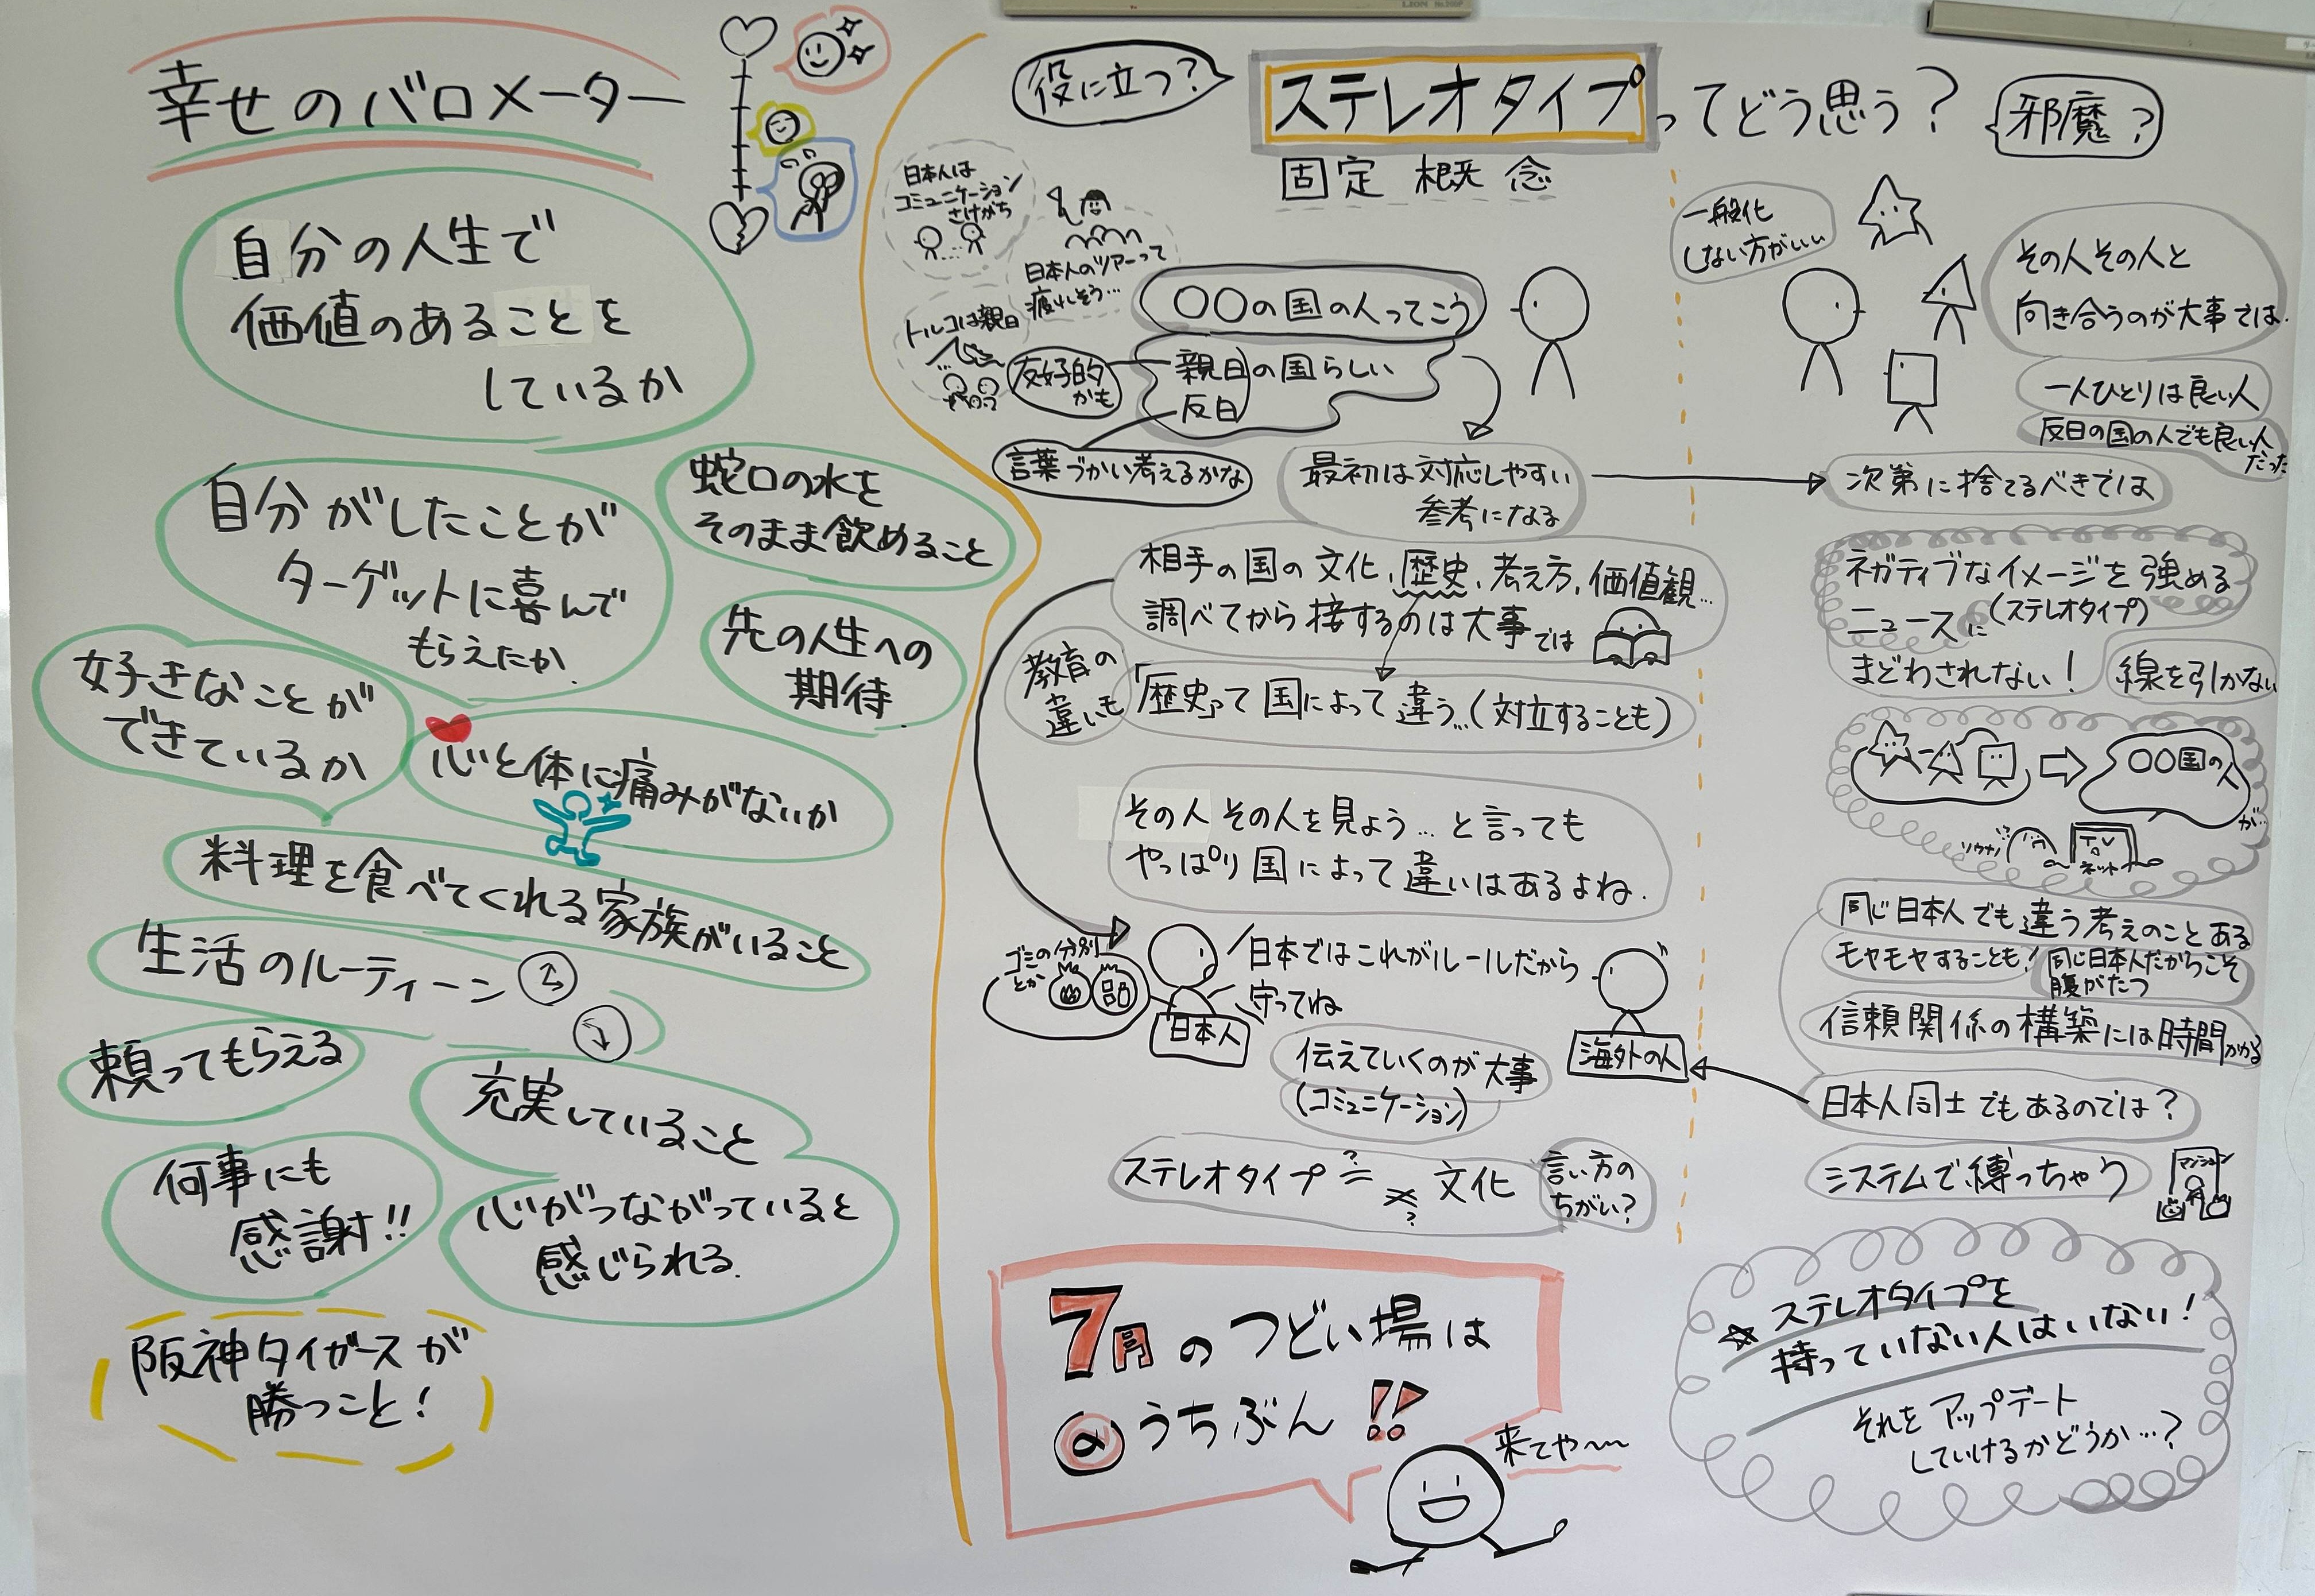 幸せのバロメーター
自分の人生で
価値のあることを
しているか
自分がしたことが
ターゲットに喜んで
もらえたか.
蛇口の水を
そのまま飲めること
先の人生への
期待.
好きなことが
できているか
心と体に痛みがないか
料理を食べてくれる家族がいること
生活のルーティーン
頼ってもらえる
充実していること
何事にも
感謝!!
心がつながっていると
感じられる.
阪神タイガースが
勝つこと!
役に立つ?
ステレオタイプってどう思う?
邪魔?
固定概念
日本人は
コミュニケーション
さけがち
日本人のツアーって
疲れそう…
トルコは親日
〇〇の国の人ってこう
親日の国らしい
反日
友好的
かも
言葉づかい考えるかな
最初は対応しやすい
参考になる
相手の国の文化、歴史、考え方、価値観…
調べてから接するのは大事では
教育の
違いも
「歴史」って国によって違う…(対立することも)
その人その人を見よう…と言っても
やっぱり国によって違いはあるよね.
ゴミの分別
とか
日本ではこれがルールだから
守ってね
日本人
海外の人
伝えていくのが大事
(コミュニケーション)
ステレオタイプ ?= ≠? 文化
言い方の
ちがい?
7月のつどい場は
@うちぶん!!
来てや〜〜
一般化
しない方がいい
その人その人と
向き合うのが大事では.
一人ひとりは良い人
反日の国の人でも良い人
だった
次第に捨てるべきでは
ネガティブなイメージを強める
ニュースに(ステレオタイプ)
まどわされない!
線を引かない
〇〇国の人
が…
ソウナノ?
TV
ネット
同じ日本人でも違う考えのことある
モヤモヤすることも!
同じ日本人だからこそ
腹がたつ
信頼関係の構築には時間かかる
日本人同士でもあるのでは?
システムで縛っちゃう
マンション
☆ステレオタイプを
持っていない人はいない!
それをアップデート
していけるかどうか…?